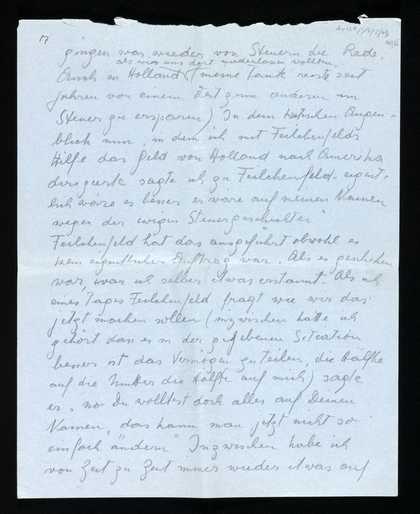 17
gingen war wieder von Steuern die Rede.
als wir uns dort niederlassen wollten
Auch in Holland (meine Tante reiste seit
Jahren von einem Ort zum anderen um
Steuer zu ersparen) In dem kritischen Augen-
blick nun, in dem ich mit Feilchenfelds
Hilfe das Geld von Holland nach Amerika
dirigierte sagte ich zu Feilchenfeld eigent-
lich wäre es besser es wäre auf meinen Namen
wegen der ewigen Steuergeschichten"
Feilchenfeld hat das ausgeführt obwohl es
kein eigentlicher Auftrag war. Als es geschehen
war, war ich selber etwas erstaunt. Als ich
eines Tages Feilchenfeld fragte wie wir das
jetzt machen sollen (inzwischen hatte ich
gehört dass es in der gegebenen Situation
besser ist das Vermögen zu teilen, die Hälfte
auf die Mutter die Hälfte auf mich) sagte
er, "no Du wolltest doch alles auf Deinen
Namen, das kann man jetzt nicht so
einfach ändern" Inzwischen habe ich
von Zeit zu Zeit immer wieder etwas auf